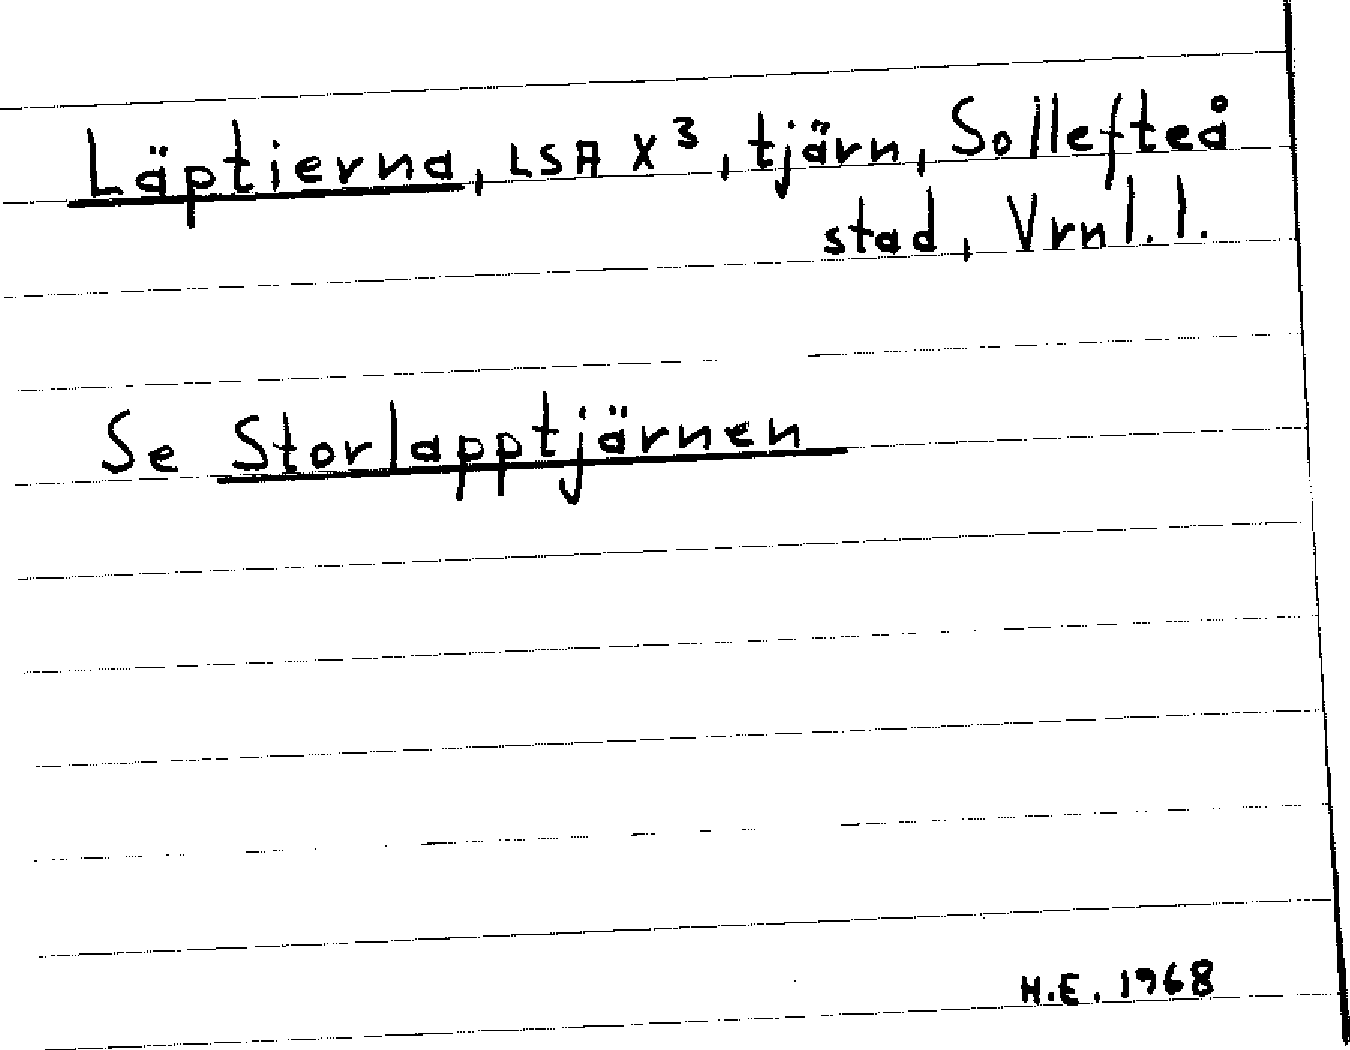 Läptierna, LSA X³, tjärn, Sollefteå
stad, Vrnl. l.
Se Storlapptjärnen
H.E. 1968